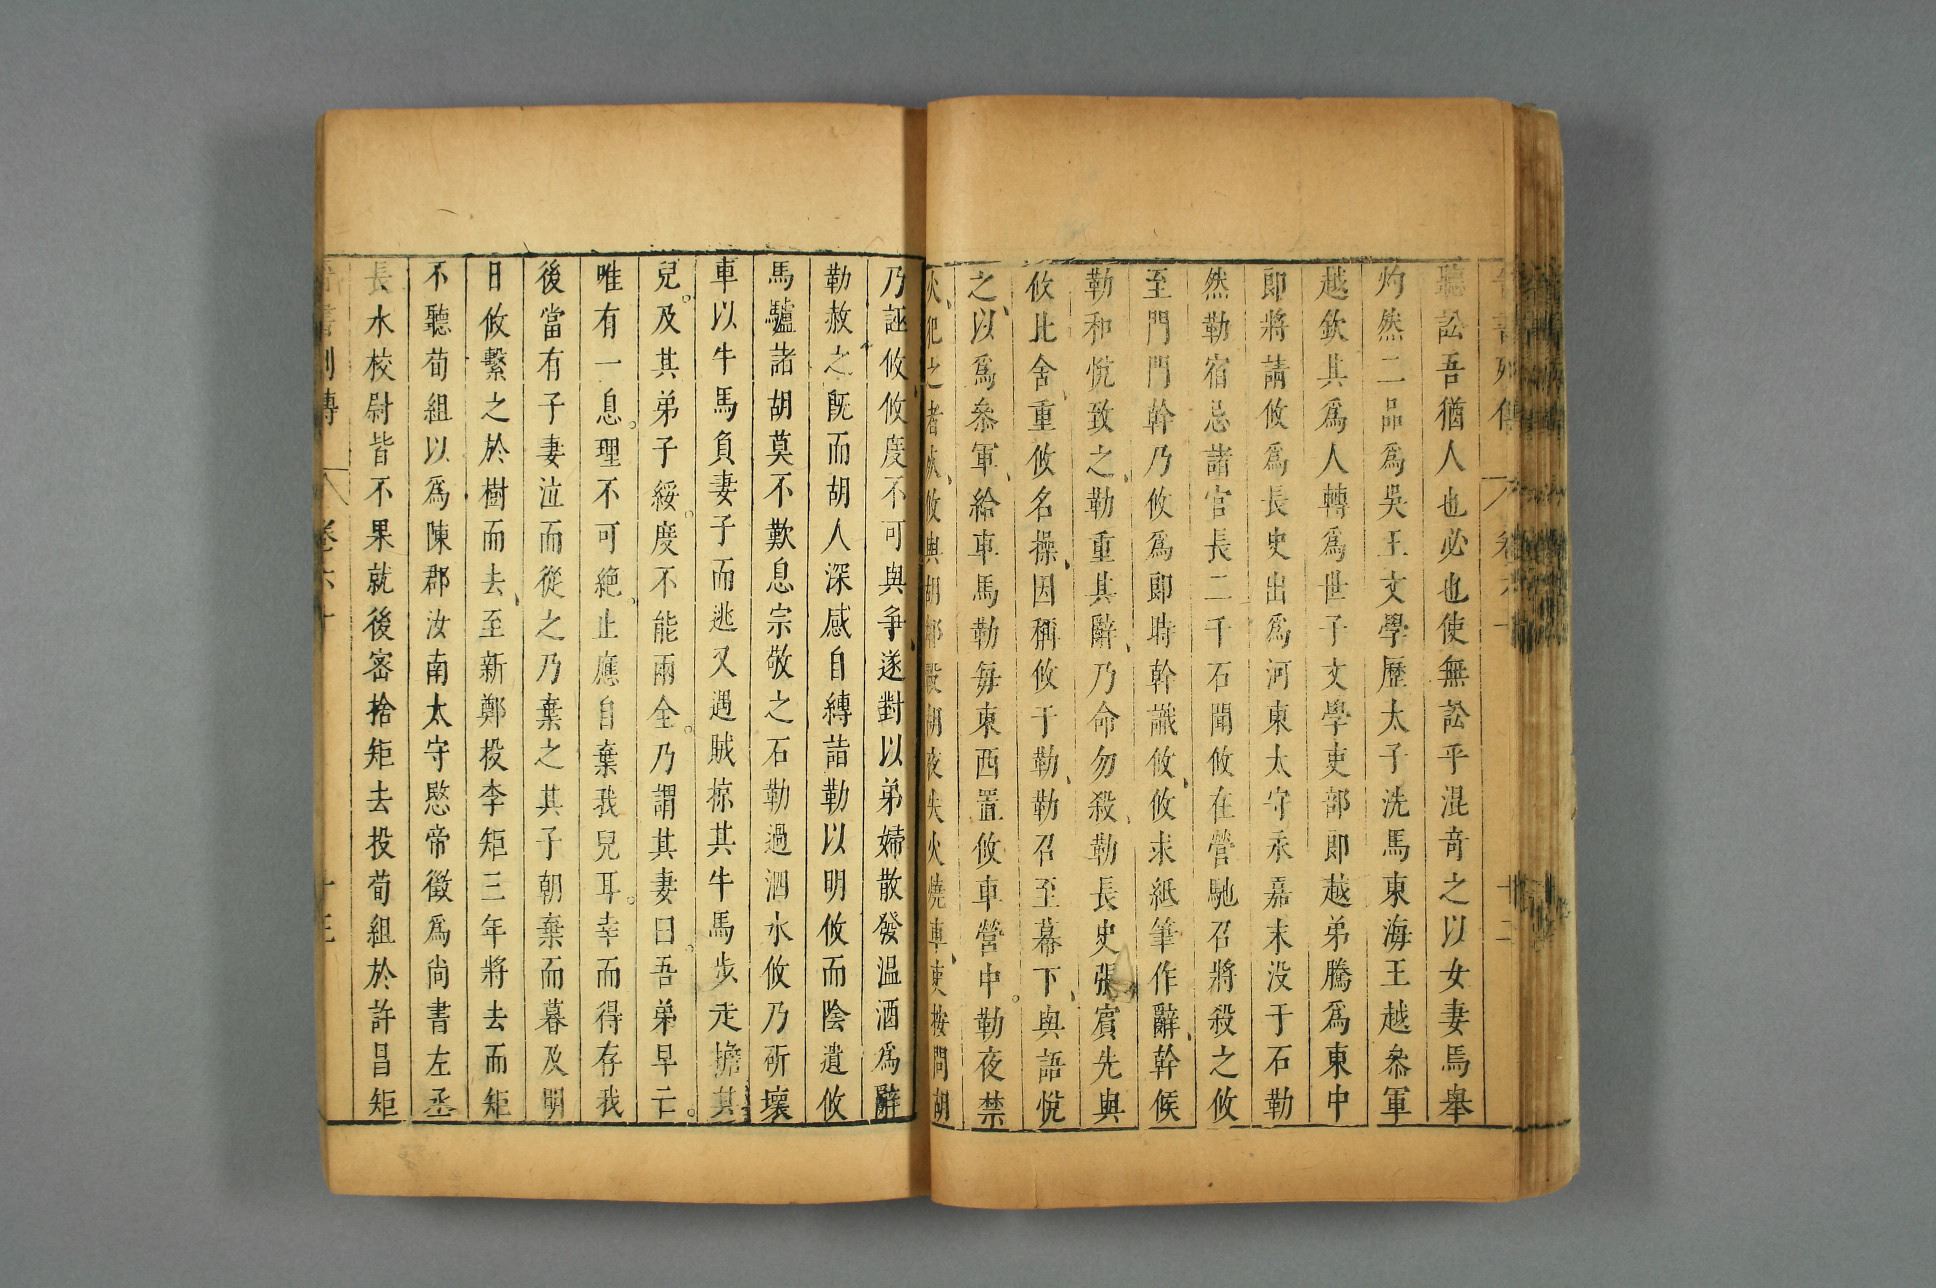 晉書列傳 卷六十 十二
聽訟吾猶人也必也使無訟乎混奇之以女妻焉舉
灼然二品爲吳王文學歷太子洗馬東海王越叅軍
越欽其爲人轉爲世子文學吏部郎越弟騰爲東中
郎將請攸爲長史出爲河東太守永嘉末没于石勒
然勒宿忌諸官長二千石聞攸在營馳召將殺之攸
至門門幹乃攸爲郎時幹識攸攸求紙筆作辭幹候
勒和悅致之勒重其辭乃命勿殺勒長史張賓先與
攸比舍重攸名操因稱攸于勒勒召至幕下與語悅
之以爲叅軍給車馬勒每東西置攸車營中勒夜禁
火犯之者攸與胡鄰轂胡夜失火燒車吏按問胡
乃誣攸攸度不可與爭遂對以弟婦散發温酒爲辭
勒赦之旣而胡人深感自縛詣勒以明攸而陰遺攸
馬驢諸胡莫不歎息宗敬之石勒過泗水攸乃斫壞
車以牛馬負妻子而逃又遇賊掠其牛馬步走擔其
兒及其弟子綏度不能兩全乃謂其妻曰吾弟早亡
唯有一息理不可絶止應自棄我兒耳幸而得存我
後當有子妻泣而從之乃棄之其子朝棄而暮及明
日攸繫之於樹而去至新鄭投李矩三年將去而矩
不聽荀組以爲陳郡汝南太守愍帝徵爲尚書左丞
長水校尉皆不果就後密捨矩去投荀組於許昌矩
書列傳 卷六十 十三